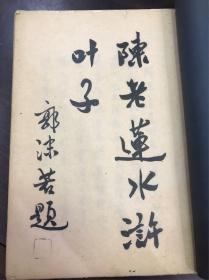 陳老蓮水滸
叶子
郭沫若題